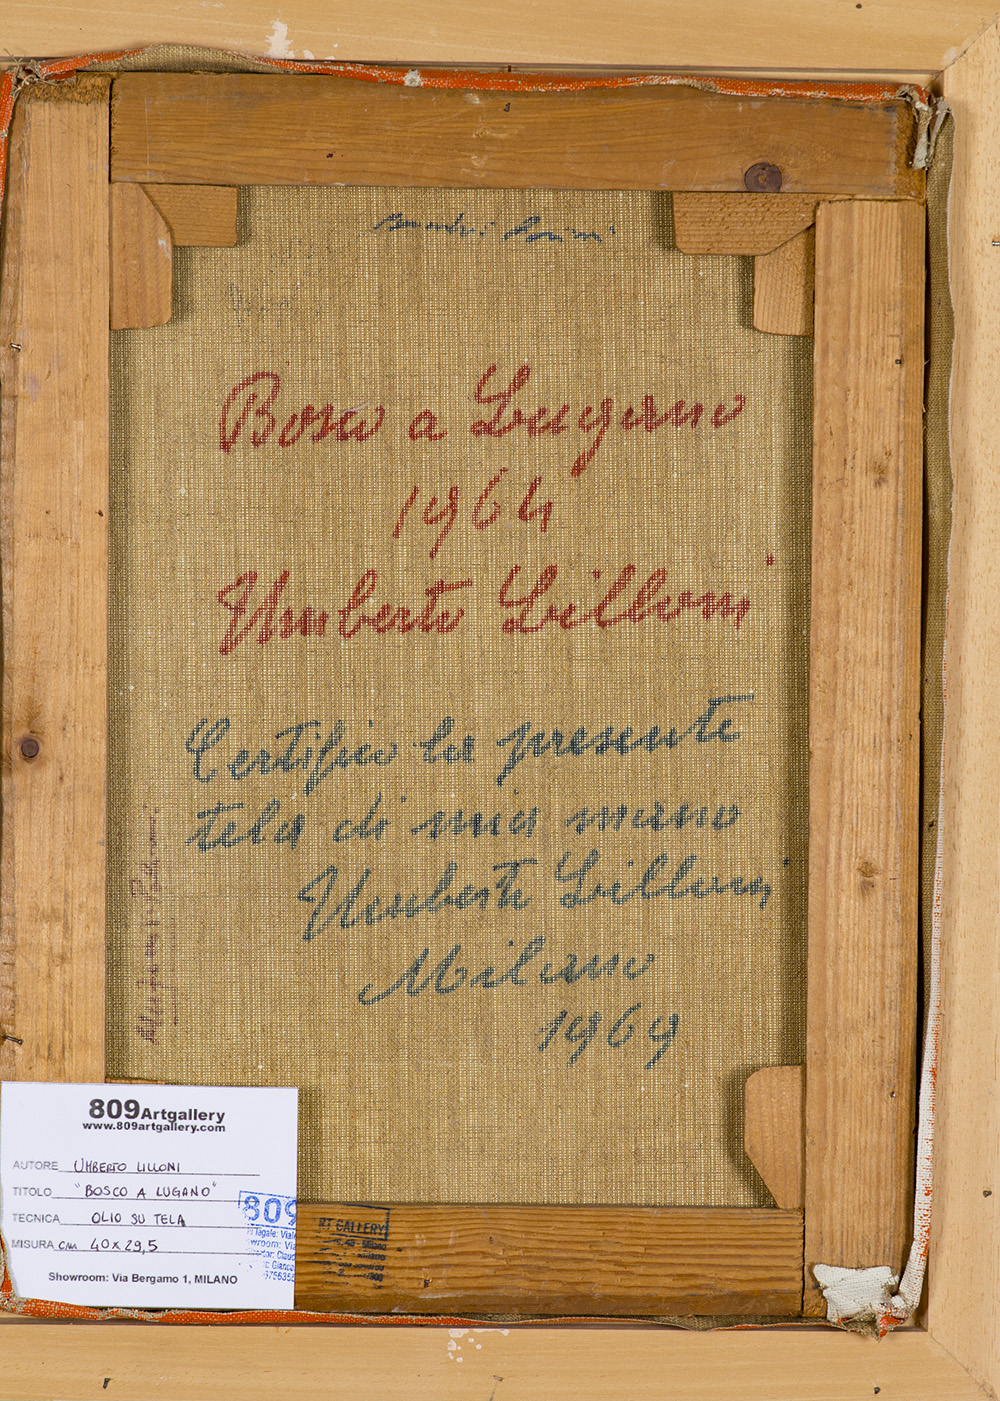 Bosco a Lugano
1964
Umberto Lilloni
Certifico la presente
tela di mia mano
Umberto Lilloni
Milano
1969
809 Artgallery
www.809artgallery.com
AUTORE UMBERTO LILLONI
TITOLO "BOSCO A LUGANO"
TECNICA OLIO SU TELA
MISURA cm 40x29,5
Showroom: Via Bergamo 1, MILANO
809
ART GALLERY